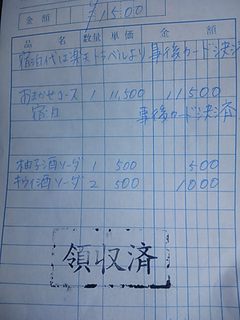 金額 ¥1500
品名 数量 単価 金額
宿泊代は楽天トラベルより事後カード決済
おまかせコース 1 11,500 11500
宿泊 事後カード決済
柚子酒ソーダ 1 500 500
キウイ酒ソーダ 2 500 1000
領収済